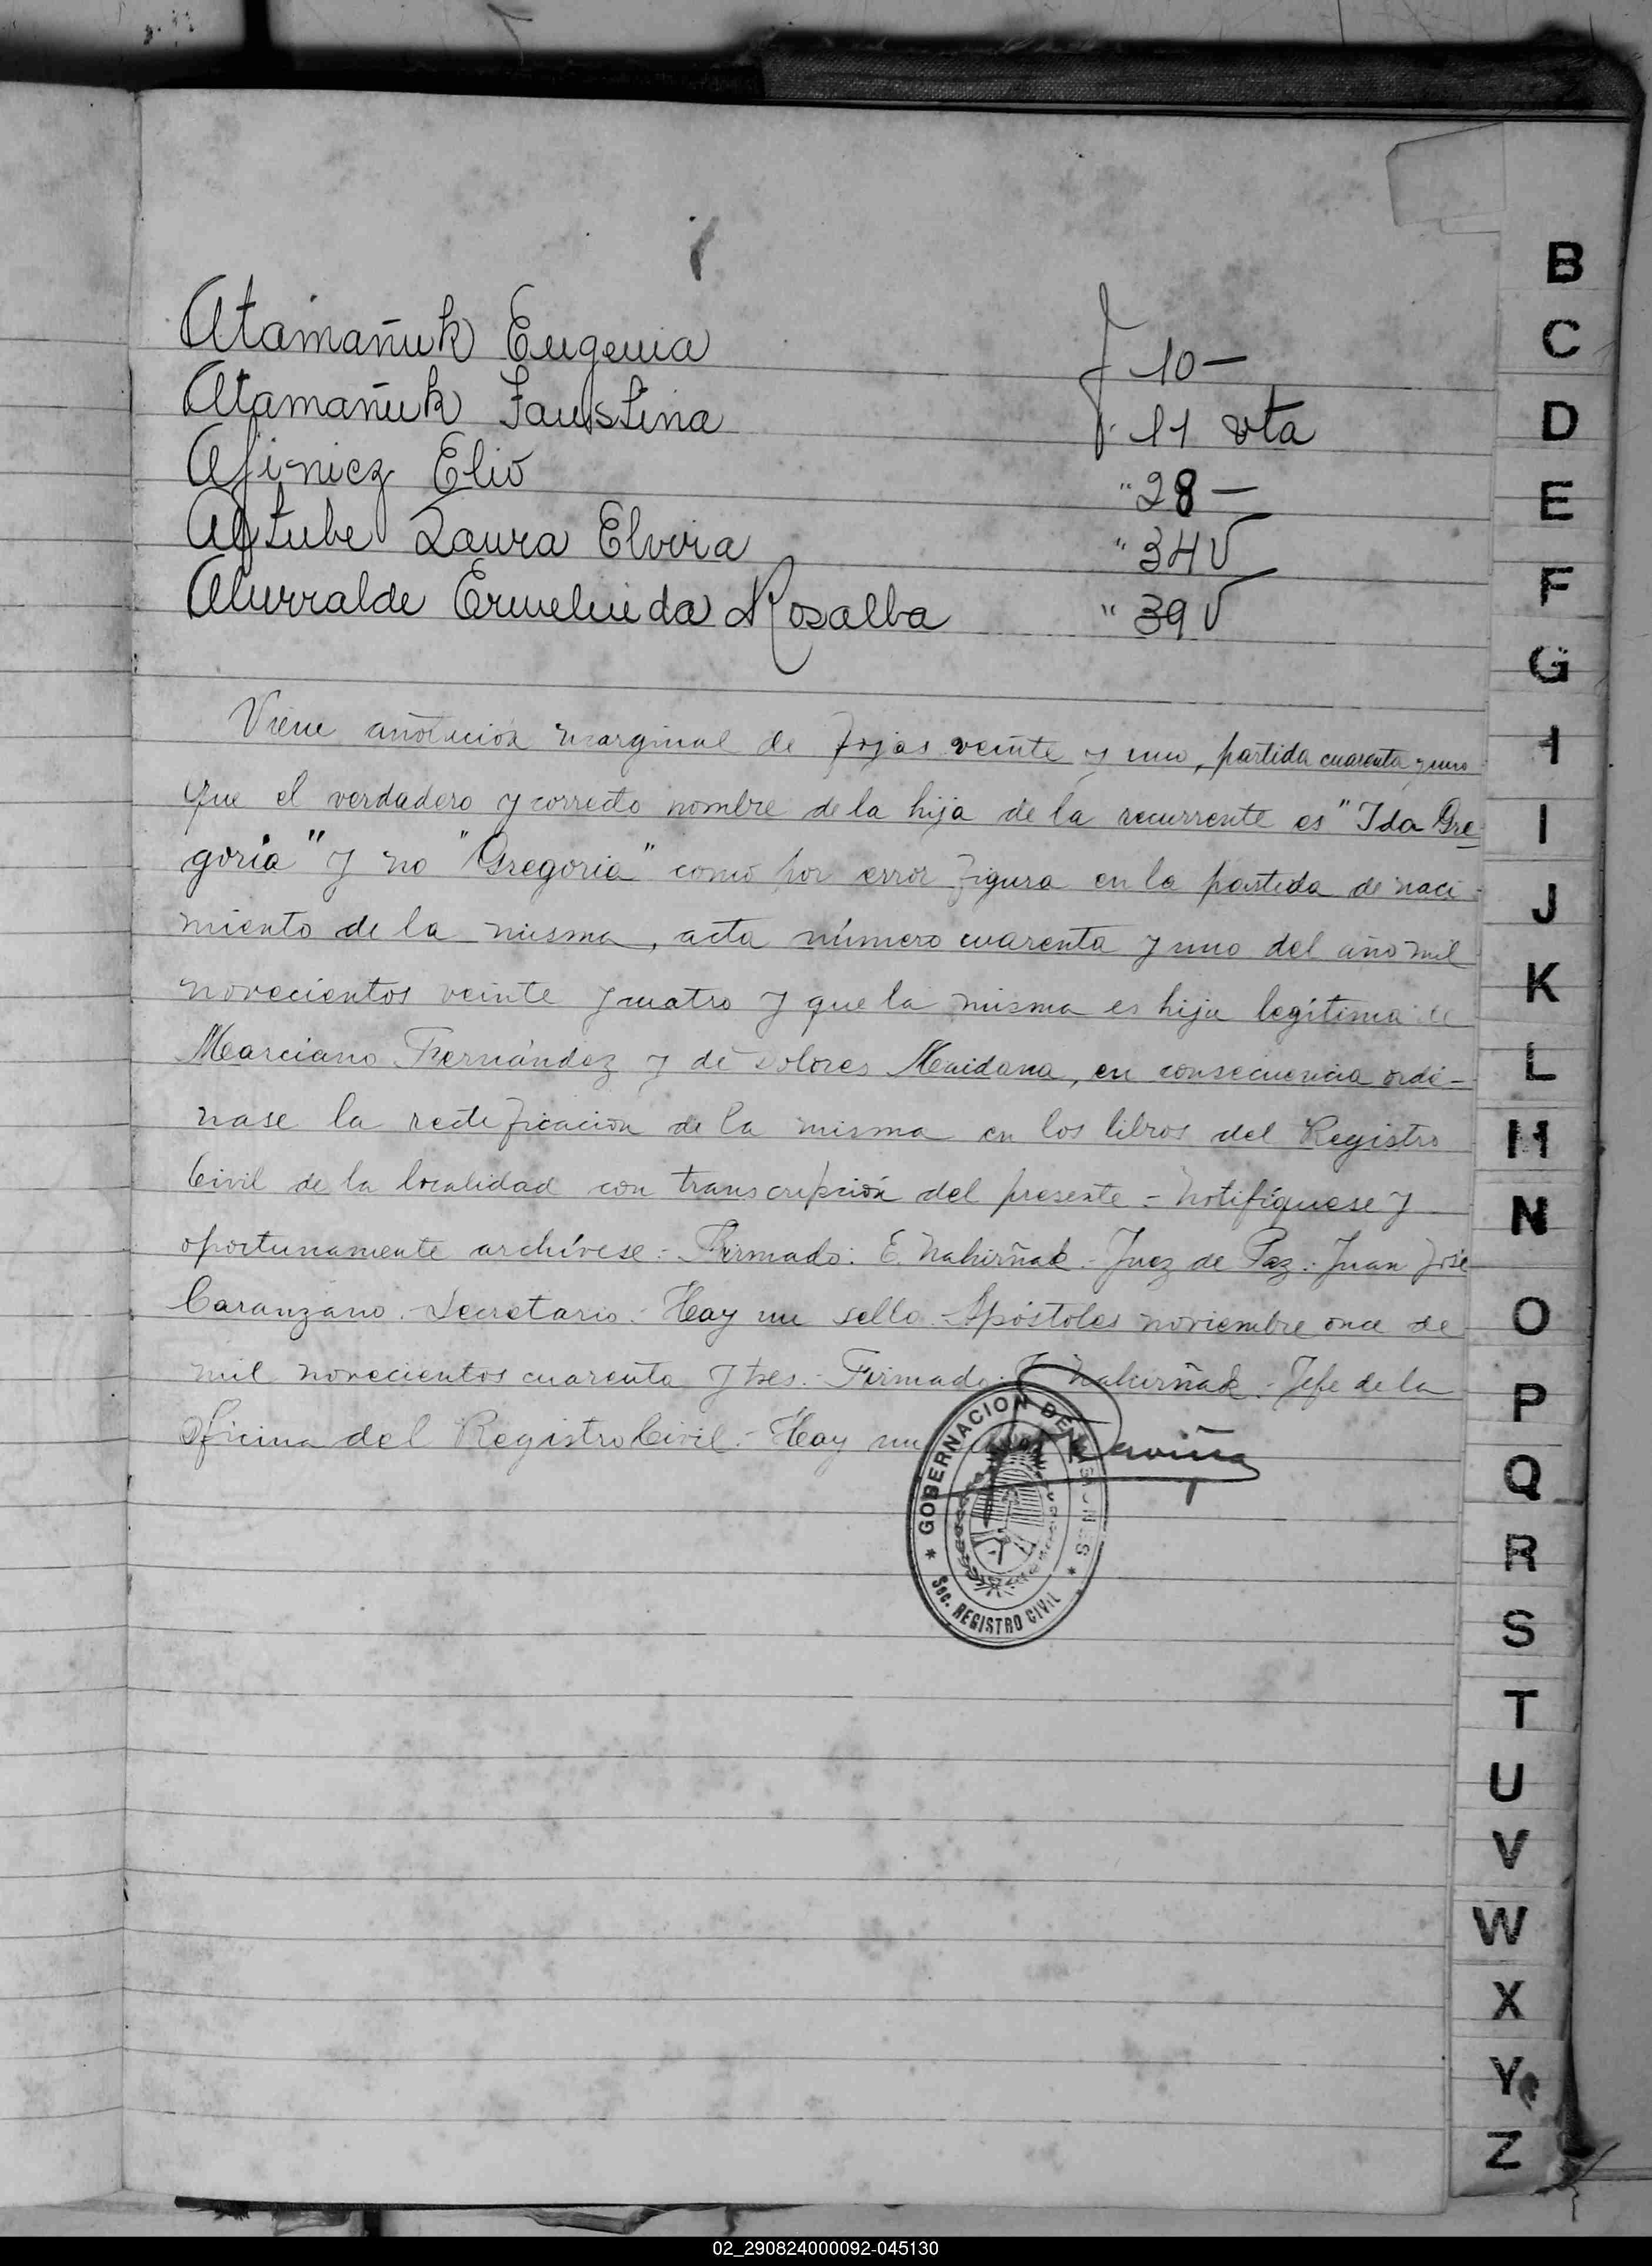 Atamañuk Eugenia f 10 —
Atamañuk Faustina f. 11 vta
Elio " 28 —
Laura Elvira " 34 V
Alurralde Ermelinda Rosalba " 39 V
Viene anotación marginal de fojas veinte y uno, partida cuarenta y uno
que el verdadero y correcto nombre de la hija de la recurrente es "Ida Gre
goria" y no "Gregoria" como por error figura en la partida de naci-
miento de la misma, acta número cuarenta y uno del año mil
novecientos veinte y cuatro y que la misma es hija legítima de
Marciano Fernández y de Dolores Maidana, en consecuencia ordé-
nase la rectificación de la misma en los libros del Registro
Civil de la localidad con transcripción del presente.- Notifíquese y
oportunamente archívese.- Firmado: E. Nahirñak.- Juez de Paz.- Juan José
Caranzano.- Secretario.- Hay un sello.- Apóstoles noviembre once de
mil novecientos cuarenta y tres.- Firmado: Nahirñak.- Jefe de la
Oficina del Registro Civil.- Hay un
* GOBERNACION DE MISIONES *
Sec. REGISTRO CIVIL
B
C
D
E
F
G
I
J
K
L
N
O
P
Q
R
S
T
U
V
W
X
Y
Z
02_290824000092-045130